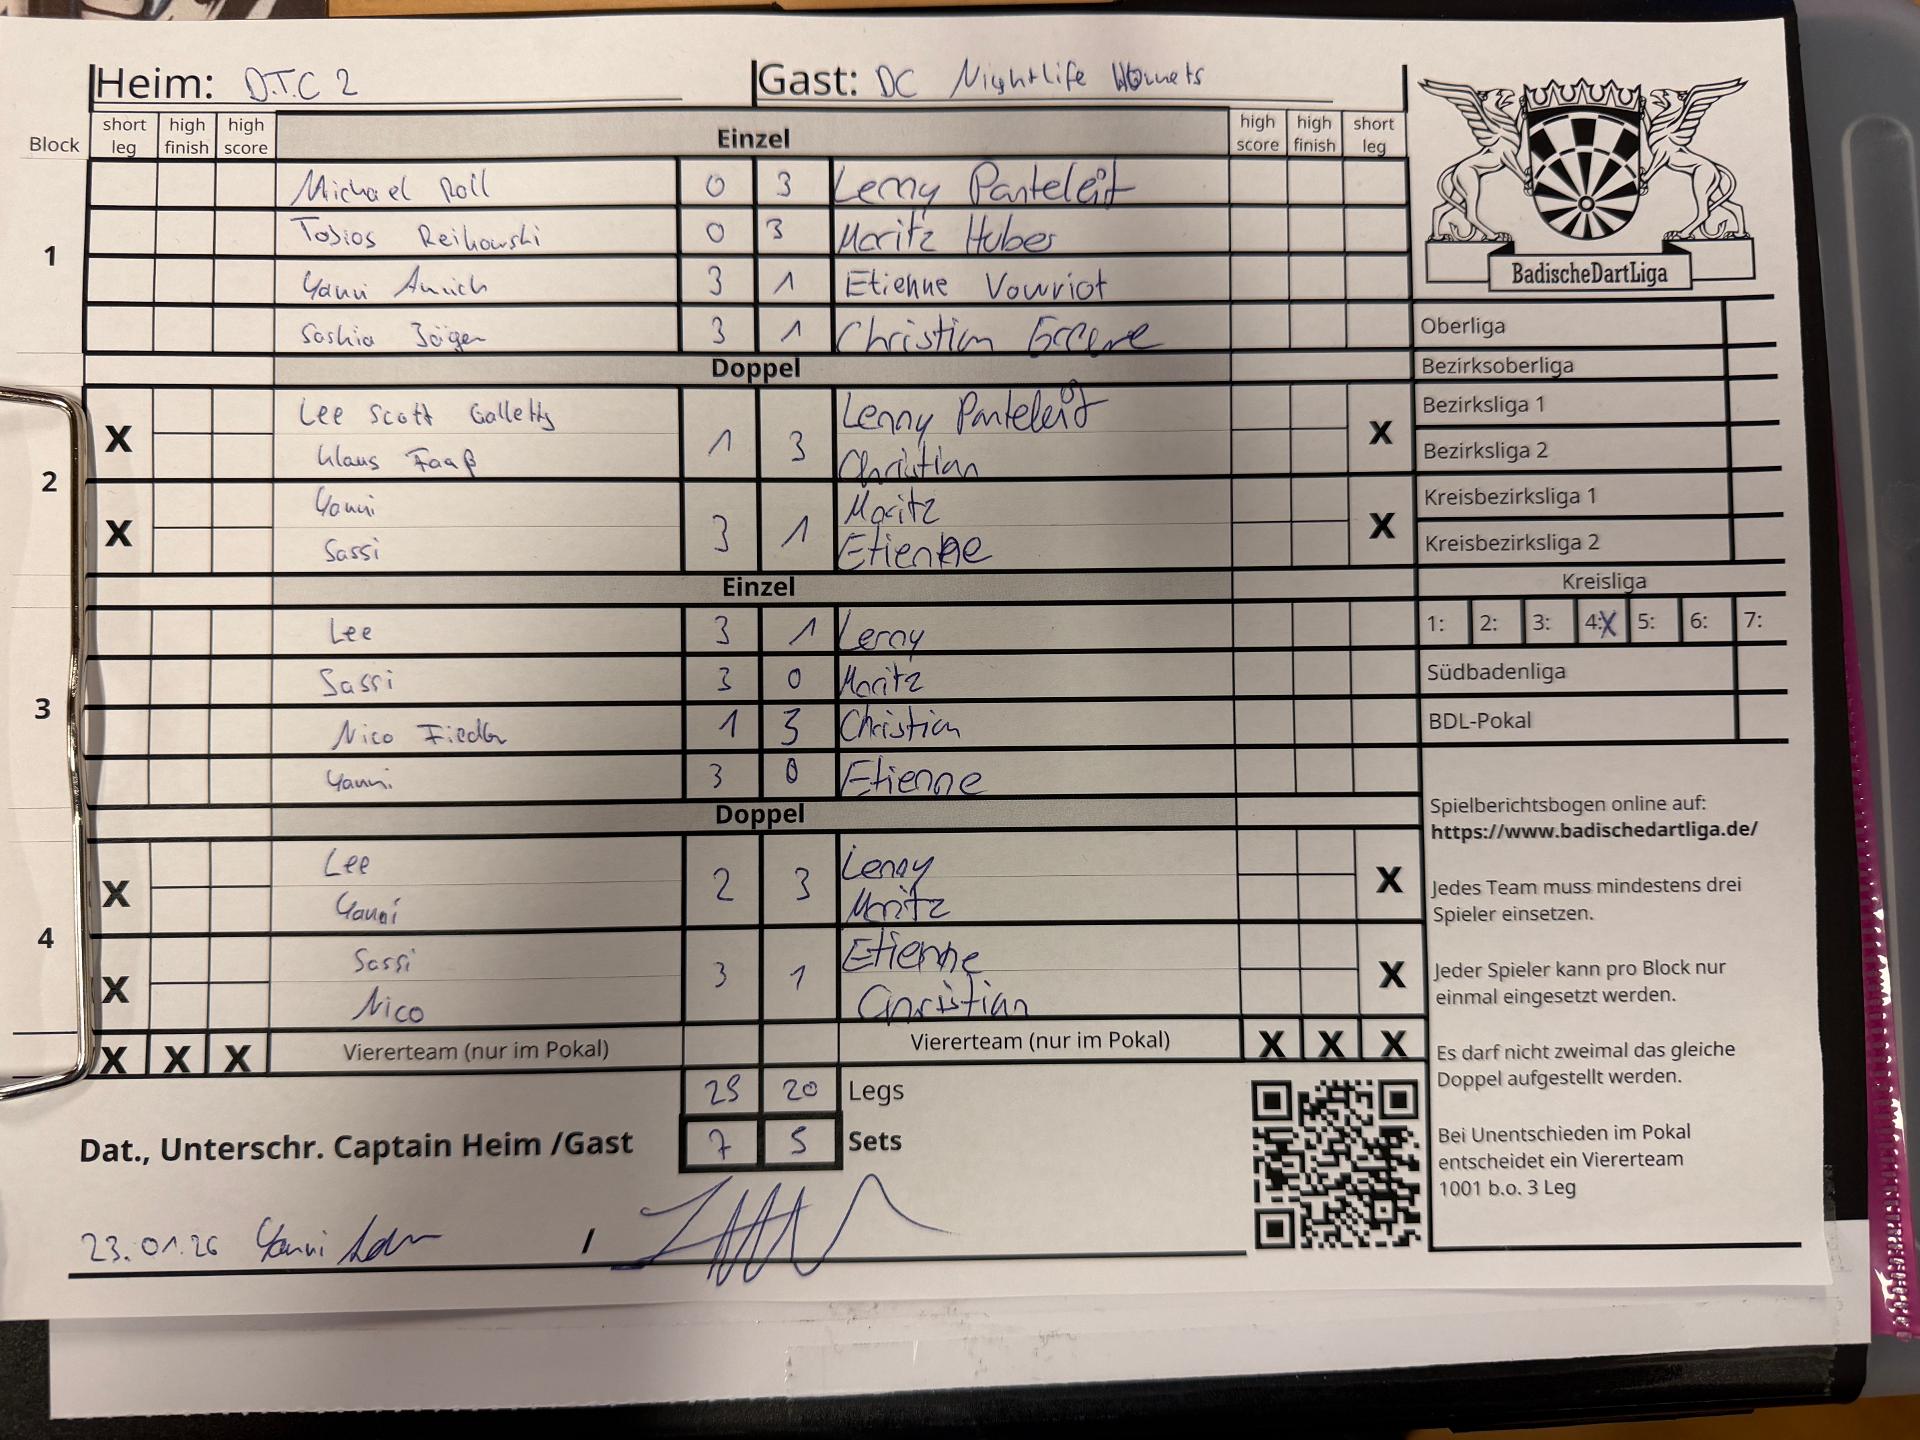 Heim: D.T.C 2 Gast: DC Nightlife Hornets
Block short leg high finish high score Einzel high score high finish short leg
1
Michael Roll 0 3 Lenny Panteleit
Tobias Reikowski 0 3 Moritz Huber
Yanni 3 1 Etienne Vouriot
Saskia Jäger 3 1 Christian
Doppel
2
X Lee Scott 1 3 Lenny Panteleit X
Klaus Faaß Christian
X Yanni 3 1 Moritz X
Sassi Etienne
Einzel
3
Lee 3 1 Lenny
Sassi 3 0 Moritz
Nico Fiedler 1 3 Christian
Yanni 3 0 Etienne
Doppel
4
X Lee 2 3 Lenny X
Yanni Moritz
X Sassi 3 1 Etienne X
Nico Christian
X X X Viererteam (nur im Pokal) Viererteam (nur im Pokal) X X X
25 20 Legs
7 5 Sets
Dat., Unterschr. Captain Heim /Gast
23.01.26 Yanni /
BadischeDartLiga
Oberliga
Bezirksoberliga
Bezirksliga 1
Bezirksliga 2
Kreisbezirksliga 1
Kreisbezirksliga 2
Kreisliga
1: 2: 3: 4:X 5: 6: 7:
Südbadenliga
BDL-Pokal
Spielberichtsbogen online auf:
https://www.badischedartliga.de/
Jedes Team muss mindestens drei
Spieler einsetzen.
Jeder Spieler kann pro Block nur
einmal eingesetzt werden.
Es darf nicht zweimal das gleiche
Doppel aufgestellt werden.
Bei Unentschieden im Pokal
entscheidet ein Viererteam
1001 b.o. 3 Leg